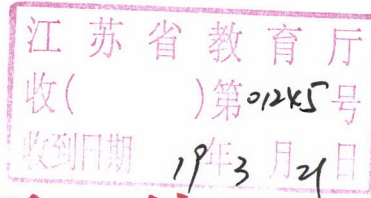 江苏省教育厅
收( )第01245号
收到日期 19年3月21日